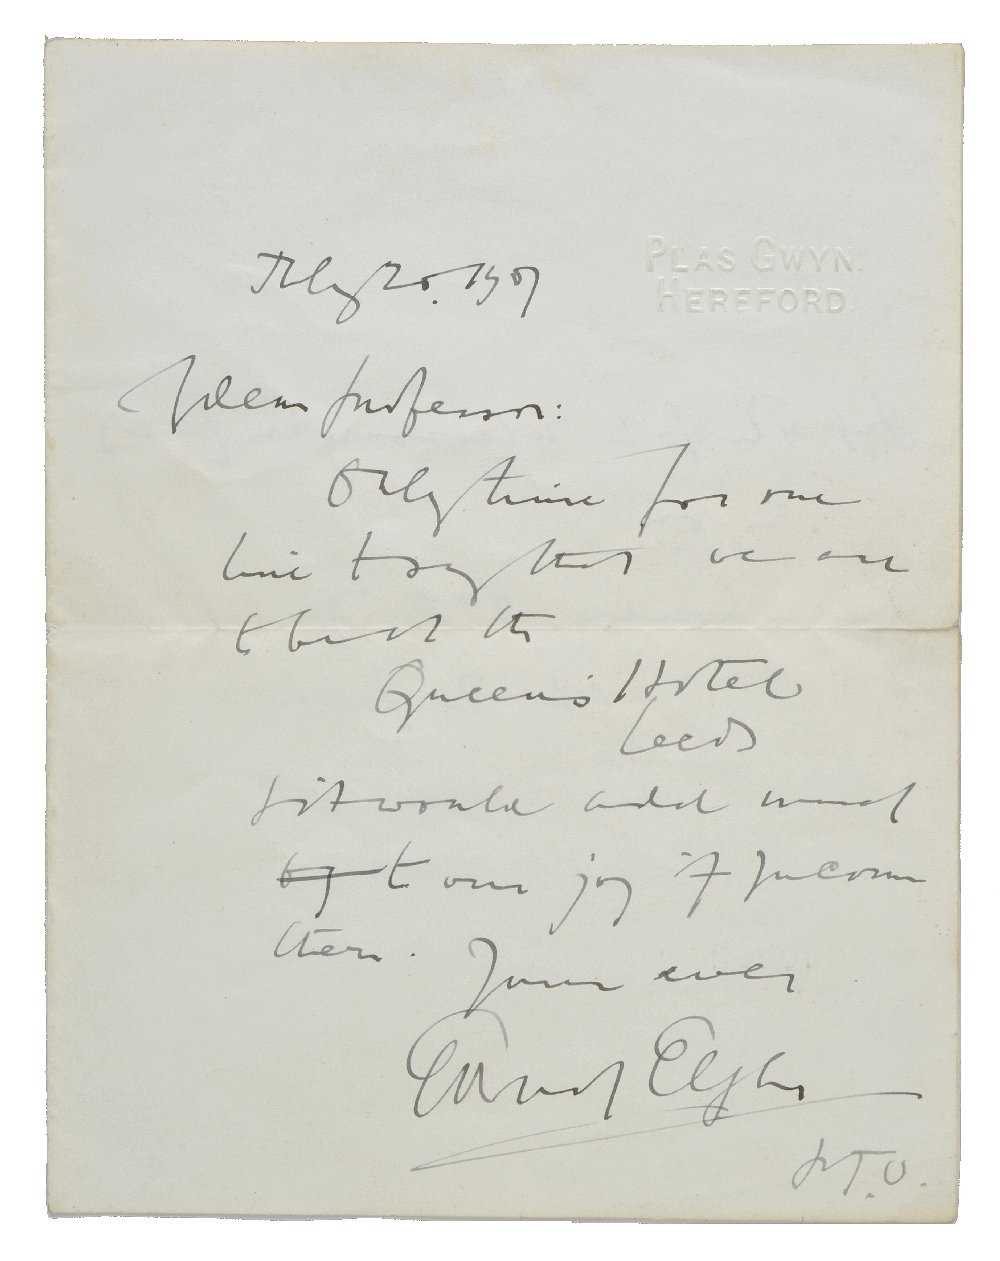 PLAS GWYN.
HEREFORD.
1907
Dear Professor:
Only time for one
line to say that we are
to be at the
Queen's Hotel
Leeds
& it would add much
by to our joy if you come
there.
Yours ever
Edward Elgar
P.T.O.